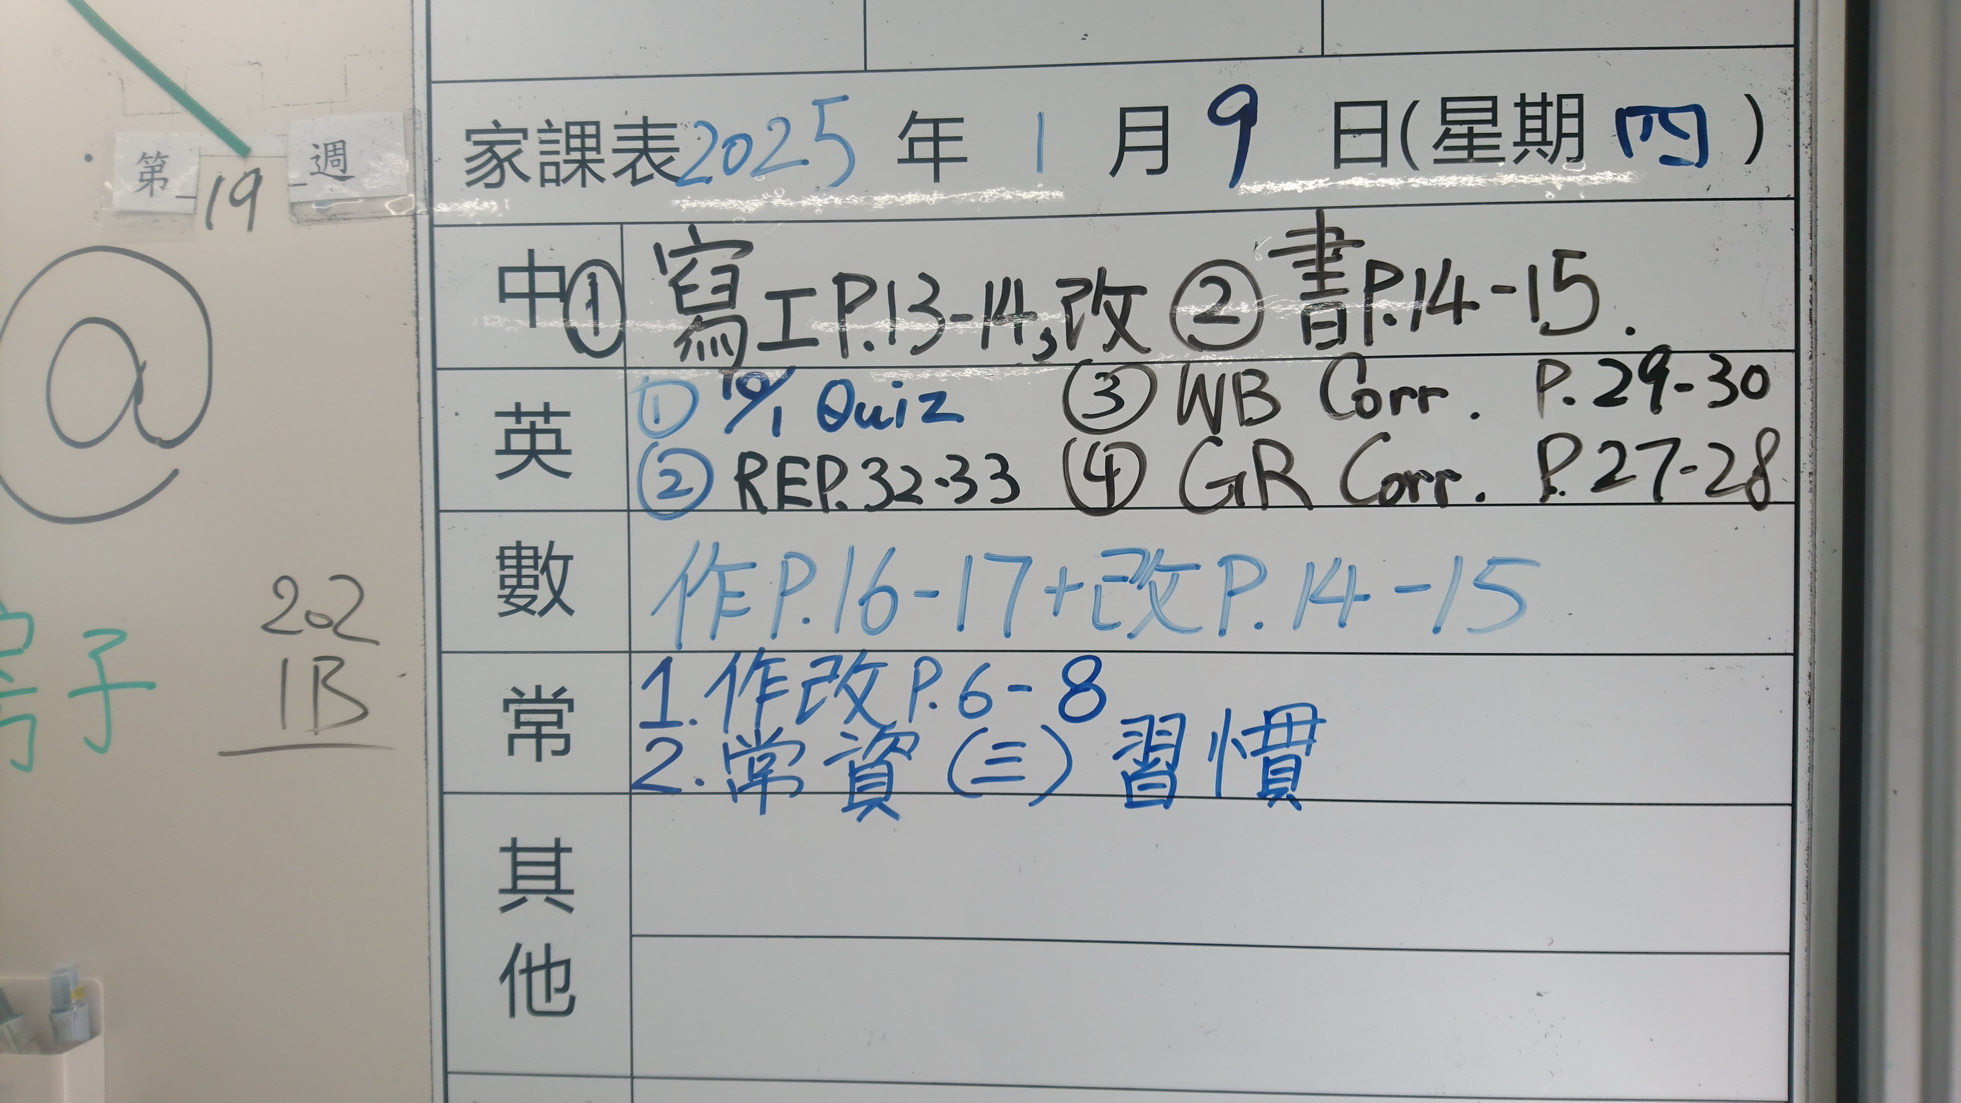 第 19 週
@
202
1B
子
家課表 2025 年 1 月 9 日(星期 四 )
中 ① 寫工P.13-14,改 ② 書P.14-15.
英
① 10/1 Quiz ③ WB Corr. P.29-30
② REP.32-33 ④ GR Corr. P.27-28
數 作P.16-17+改P.14-15
常
1.作改P.6-8
2.常資(三)習慣
其他